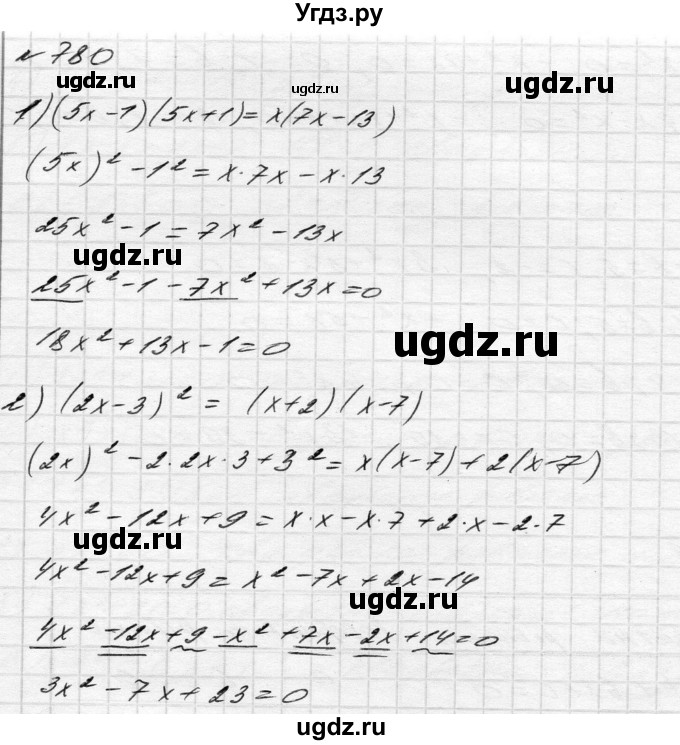 Угдз.ру
№ 780
ugdz.ru ugdz.ru ugdz.ru
1) (5x-1)(5x+1)=x(7x-13)
(5x)²-1²=x·7x-x·13
25x²-1=7x²-13x
ugdz.ru
25x²-1-7x²+13x=0
18x²+13x-1=0
ugdz.ru
2) (2x-3)²=(x+2)(x-7)
(2x)²-2·2x·3+3²=x(x-7)+2(x-7)
4x²-12x+9=x·x-x·7+2·x-2·7
ugdz.ru
4x²-12x+9=x²-7x+2x-14
ugdz.ru
4x²-12x+9-x²+7x-2x+14=0
3x²-7x+23=0
ugdz.ru